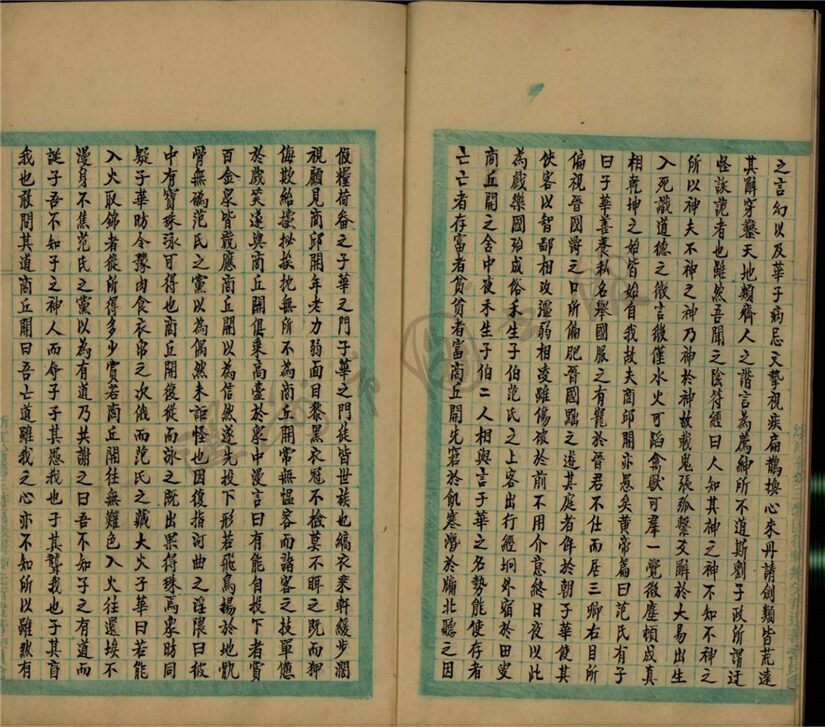 之言幻以及華子病忘文摯視疾扁鵲換心來丹請劍類皆荒遠
其辭穿鑿天地類齊人之諧言為薦紳所不道斯劉子政所謂迂
怪詼詭者也雖然吾聞之陰符經曰人知其神之神不知不神之
所以神夫不神之神乃神於神故載鬼張弧繫爻辭於大易出生
入死戢道德之微言後僅水火可蹈禽獸可羣一覺微塵頓成真
相乾坤之始皆始自我故夫商邱開亦愚矣黃帝篇曰范氏有子
曰子華善養私名舉國服之有寵於晉君不仕而居三卿右目所
偏視晉國爵之口所偏肥晉國黜之遊其庭者侔於朝子華使其
俠客以智鄙相攻彊弱相凌雖傷破於前不用介意終日夜以此
為戲樂國殆成俗禾生子伯范氏之上客出行經坰外宿於田叟
商丘開之舍中夜禾生子伯二人相與言子華之名勢能使存者
亡亡者存富者貧貧者富商丘開先窘於飢寒潛於牖北聽之因
假糧荷畚之子華之門子華之門徒皆世族也縞衣乘軒緩步濶
視顧見商邱開年老力弱面目黎黑衣冠不檢莫不眲之既而狎
侮欺紿攩㧙挨抌無所不為商丘開常無愠容而諸客之技單憊
於戲笑遂與商丘開俱乘高臺於衆中漫言曰有能自投下者賞
百金衆皆競應商丘開以為信然遂先投下形若飛鳥揚於地肌
骨無䃣范氏之黨以為偶然未詎怪也因復指河曲之淫隈曰彼
中有寶珠泳可得也商丘開復從而泳之既出果得珠焉衆昉同
疑子華昉令豫肉食衣帛之次俄而范氏之藏大火子華曰若能
入火取錦者從所得多少賞若商丘開往無難色入火往還埃不
漫身不焦范氏之黨以為有道乃共謝之曰吾不知子之有道而
誕子吾不知子之神人而辱子子其愚我也子其聾我也子其盲
我也敢問其道商丘開曰吾亡道雖我之心亦不知所以雖然有